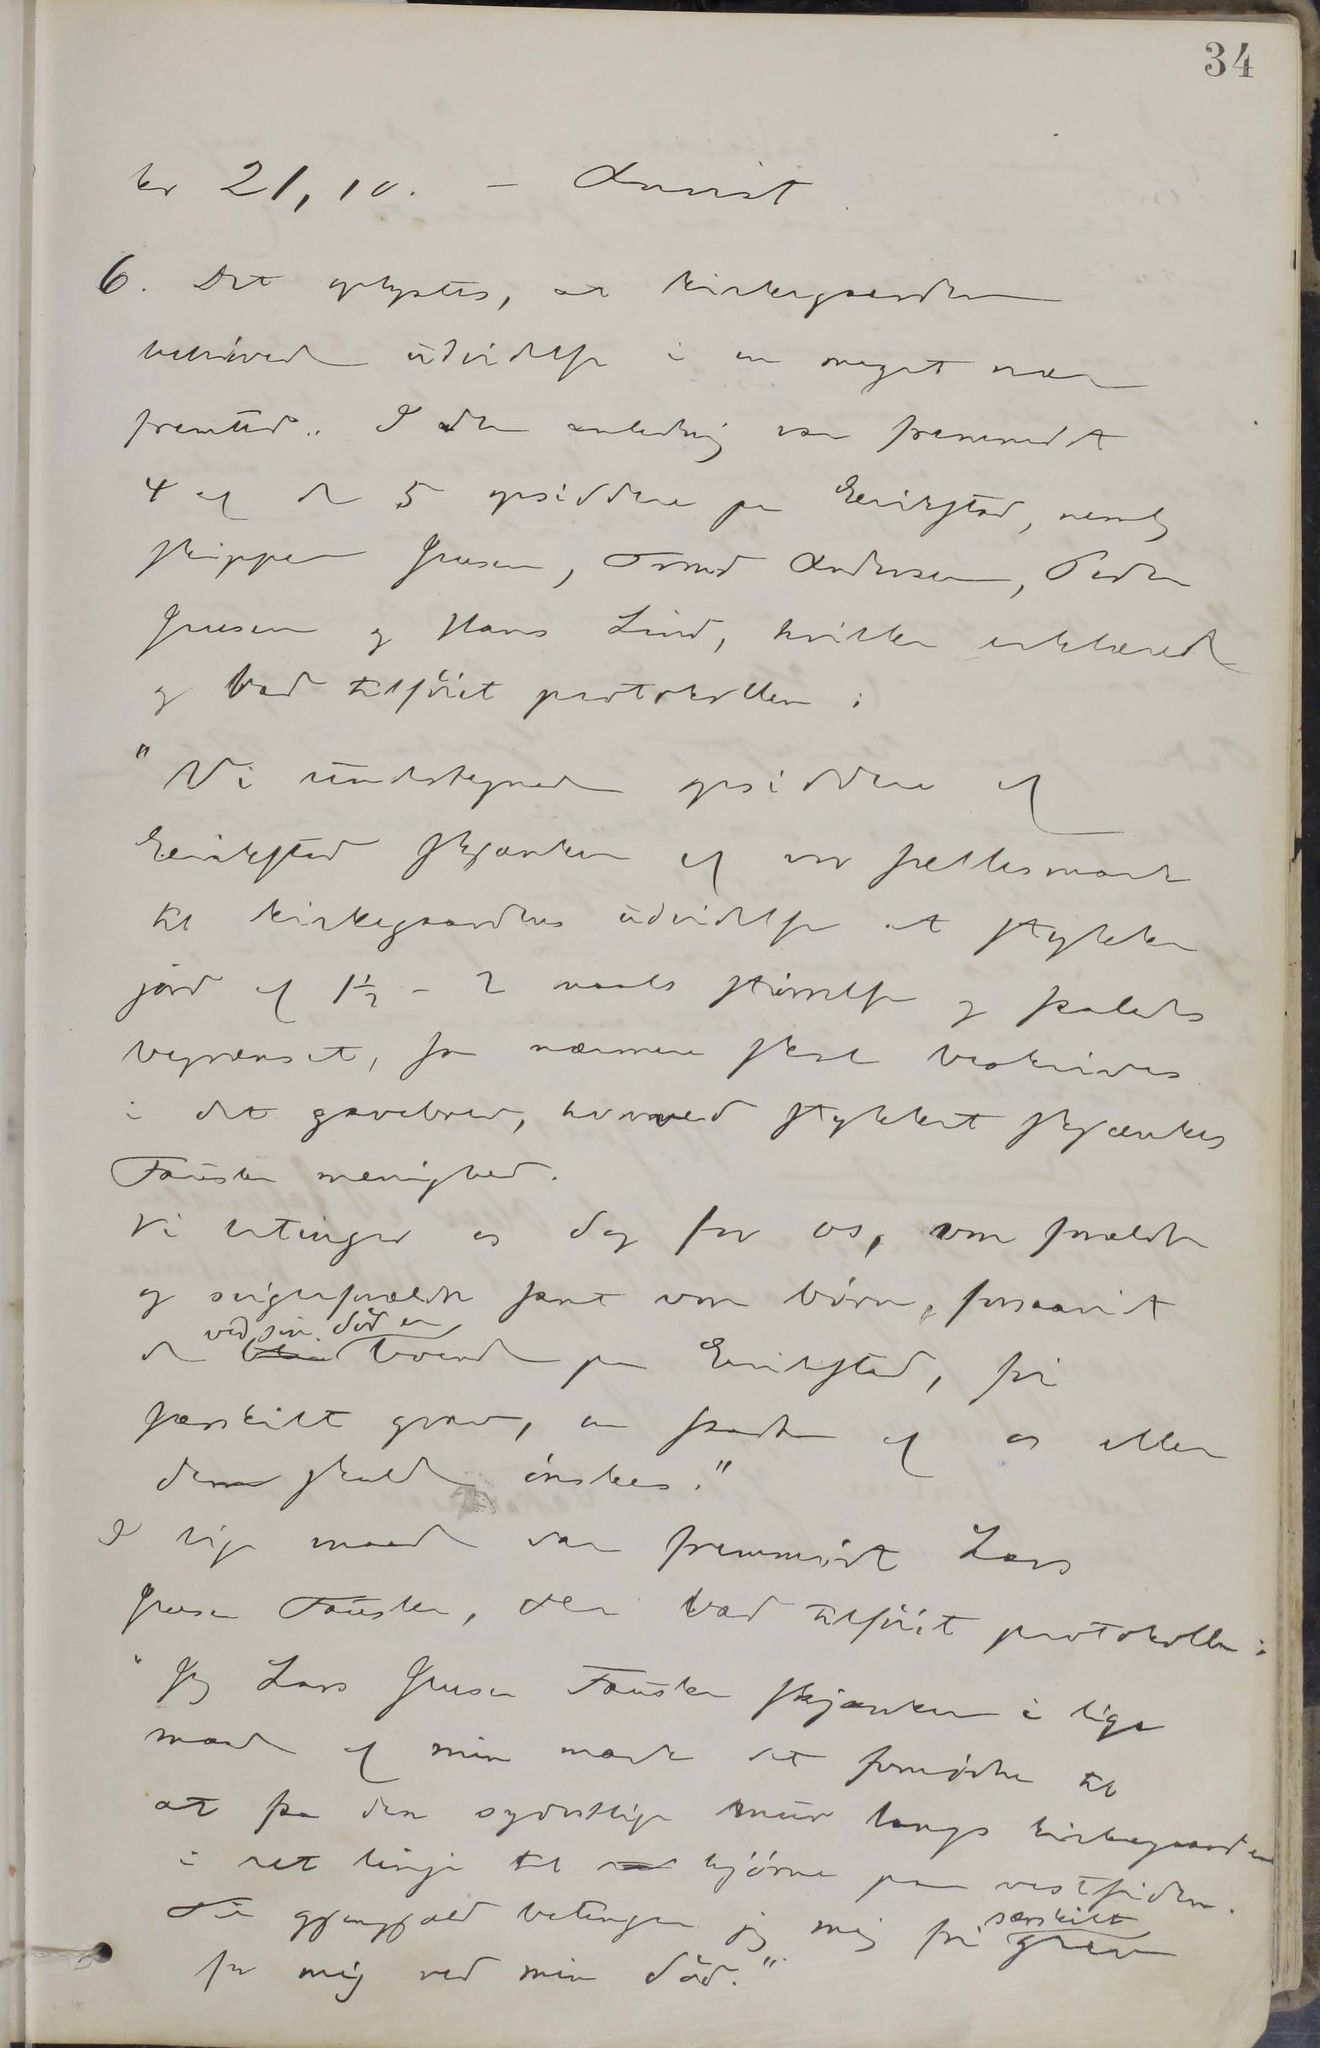 34
kr 21,10. – Anvist.
6. Det oplystes, at kirkegaarden
behövede udvidelse i en meget nær
fremtid. I den anledning var fremmødt
4 af de 5 opsiddere paa Erikstad, nemlig
skipper Jensen, Trond Andersen, Peder
Jensen og Hans Lind, hvilke erklærede
og bad tilföiet protokollen:
"Vi undertegnede opsiddere af
Erikstad skjænker af vor fællesmark
til kirkegaardens udvidelse et stykke
jord af 1½ – 2 maals störrelse og saaledes
begrænset, som nærmere skal beskrives
i det gavebrev, hvorved stykket skjænkes
Fauske menighed.
Vi betinger os dog for os, vore forældre
og svigerforældre samt vore börn, forsaavidt
ved sin död er
de boende paa Erikstad, fri
særskilt grav, om saadan af os eller
dem skulde önskes."
I lige maade var fremmødt Lars
Jensen Fauske, der bad tilföiet protokollen:
"Jeg Lars Jensen Fauske skjænker i lige
maade af min mark det fornödne til
at faa den sydöstlige mur langs kirkegaarden
i ret linje til hjörne paa vestsiden.
Til gjengjæld betinger jeg mig fri særskilt grav
for mig ved min död."